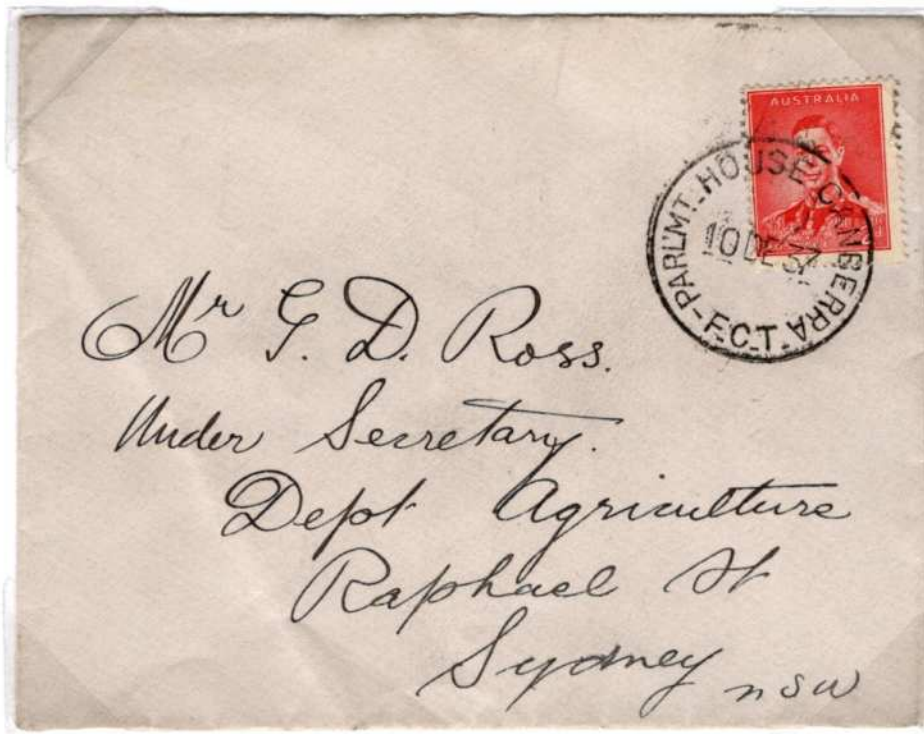 AUSTRALIA
PARL'MT. HOUSE CANBERRA
10 DE 37
-F.C.T-
Mr G. D. Ross.
Under Secretary.
Dept Agriculture
Raphael St
Sydney
nsw